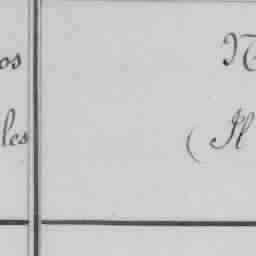 os N
les ( Il